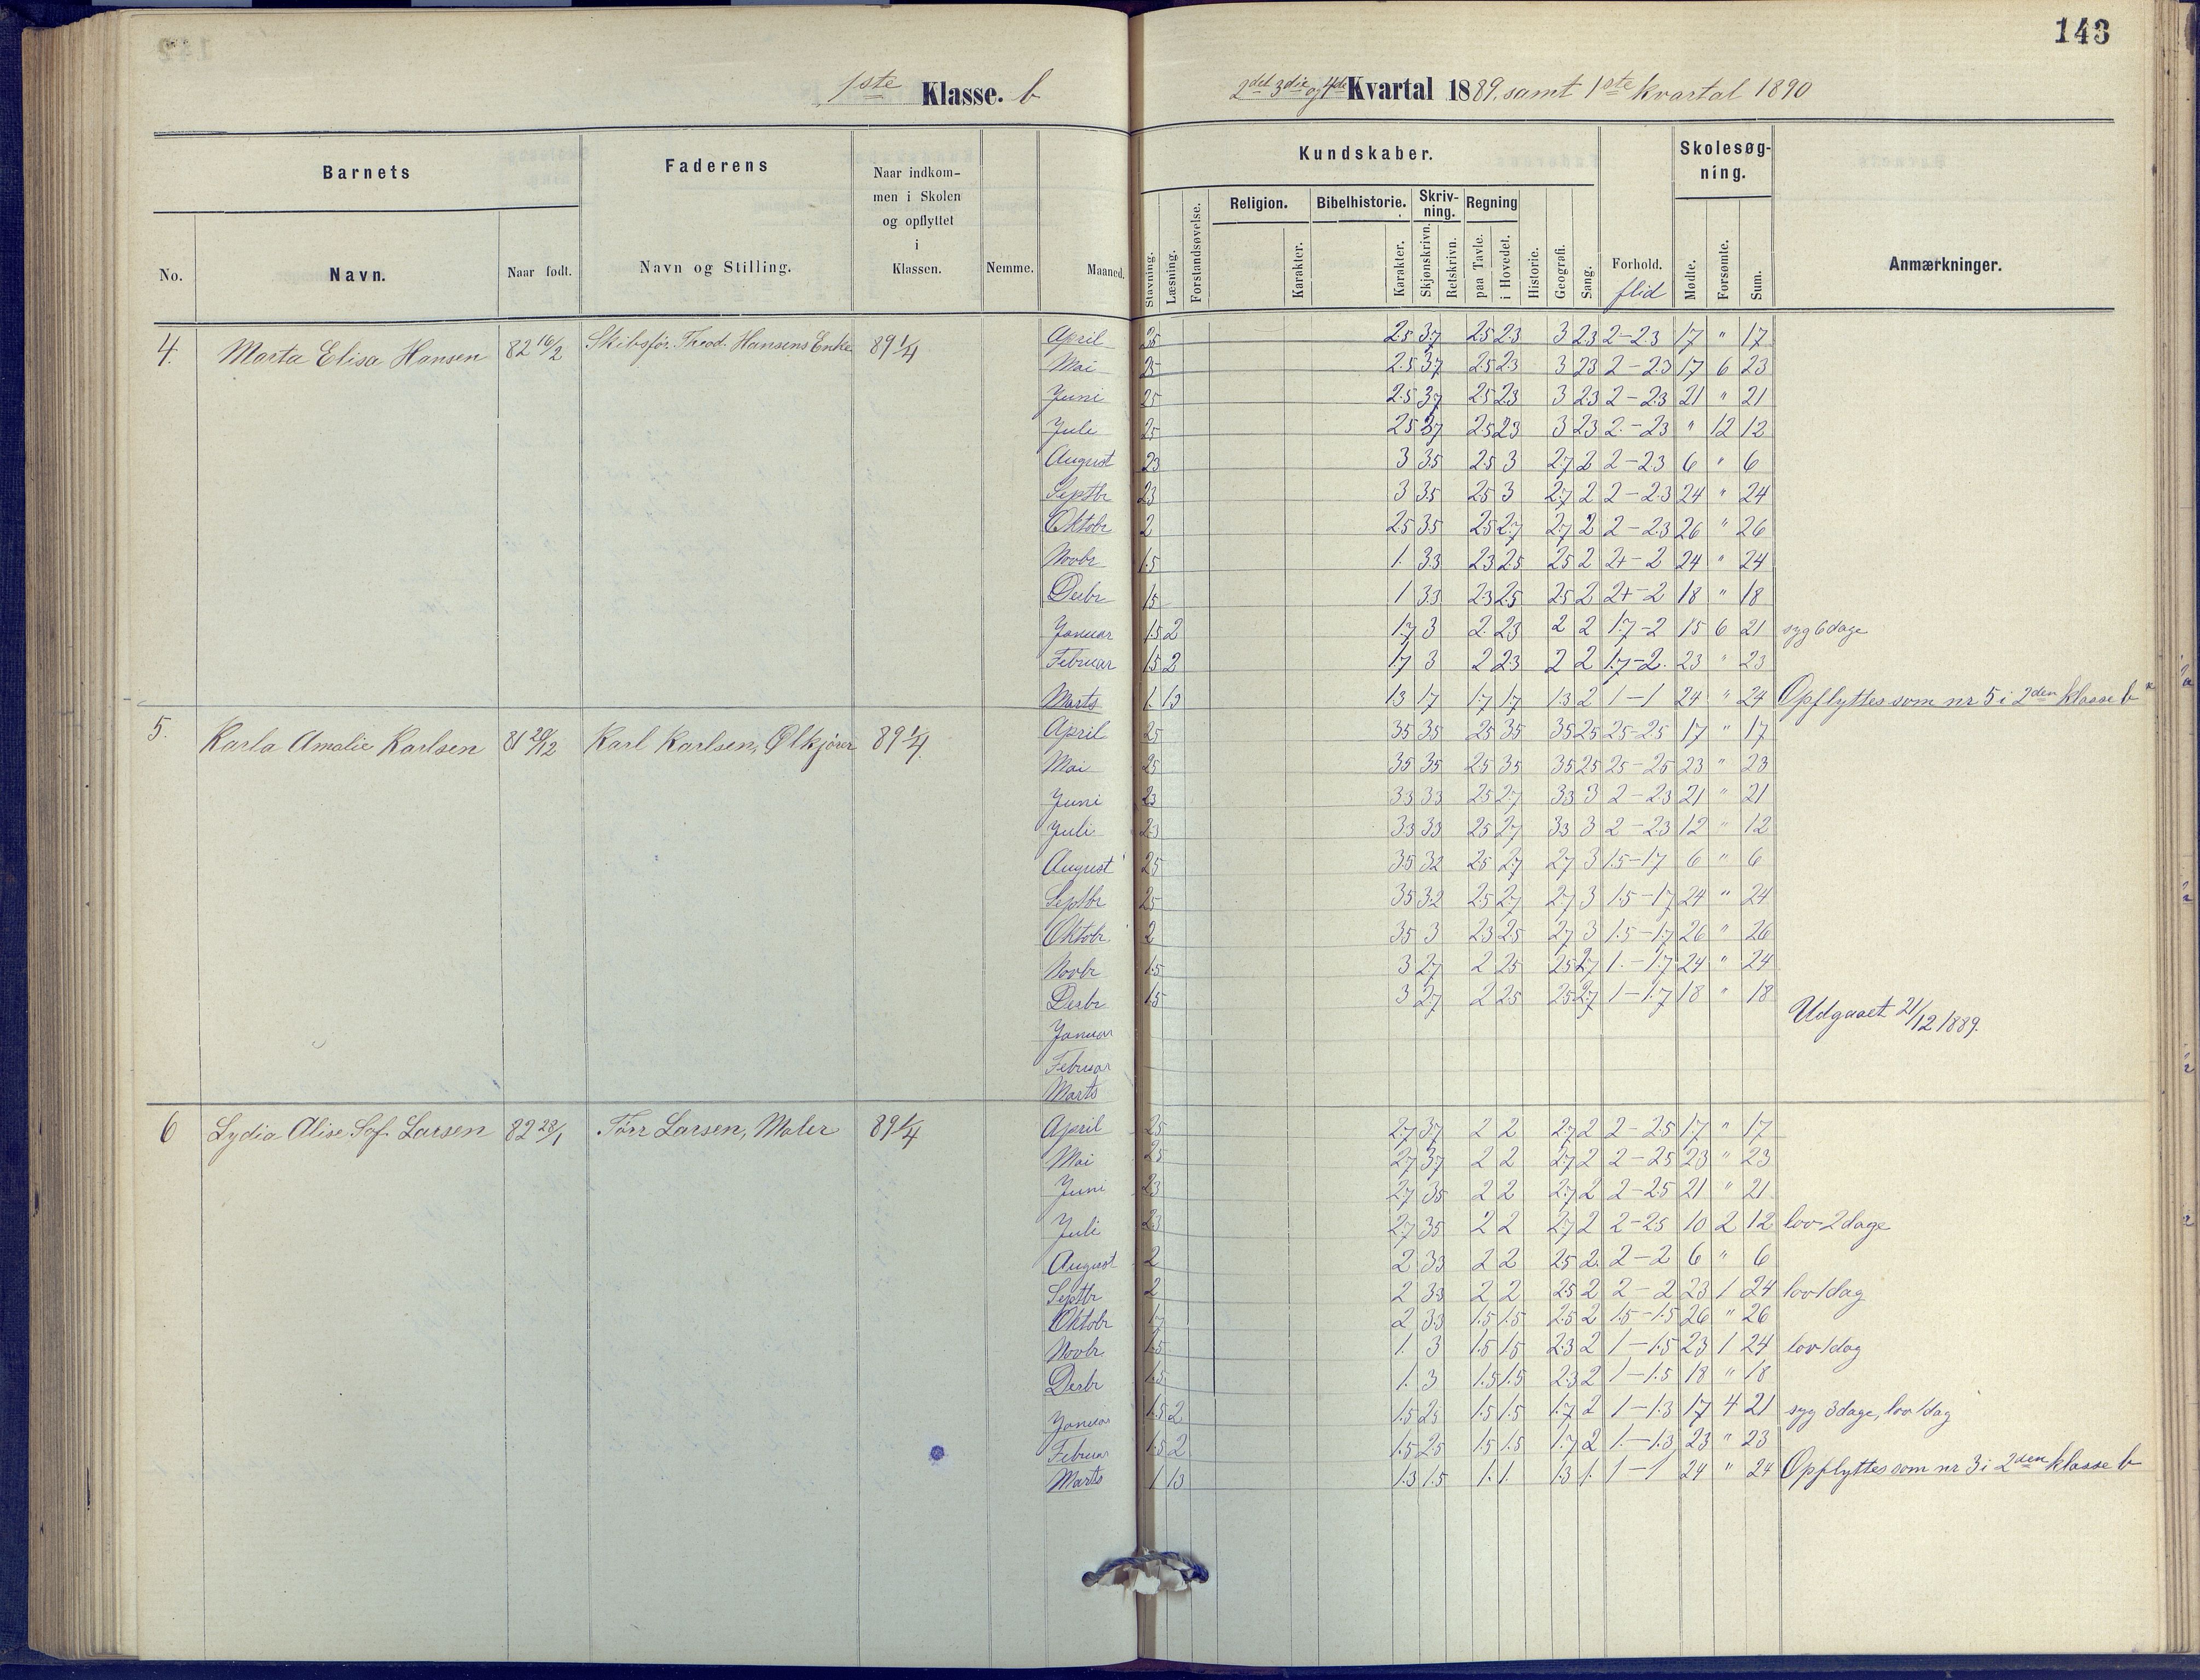 143
1ste Klasse. b
2det 3die og 4de Kvartal 1889, samt 1ste kvartal 1890
Barnets
Faderens
Naar indkom-
men i Skolen
og opflyttet
i
Klassen.
No.
Navn.
Naar født.
Navn og Stilling.
Nemme.
Maaned.
Kundskaber.
Skolesøg-
ning.
Religion.
Bibelhistorie.
Skriv-
ning.
Regning
Stavning.
Læsning.
Forstandsøvelse.
Karakter.
Karakter.
Skjønskrivn.
Retskrivn.
paa Tavle.
i Hovedet.
Historie.
Geografi.
Sang.
Forhold.
flid
Mødte.
Forsømte.
Sum.
Anmærkninger.
4. Marta Elisa Hansen 82 16/2 Skibsfør. Theod. Hansens Enke 89 1/4
April 25 25 37 25 23 3 23 2-23 17 " 17
Mai 25 25 37 25 23 3 23 2-23 17 6 23
Juni 25 25 37 25 23 3 23 2-23 21 " 21
Juli 25 25 37 25 23 3 23 2-23 " 12 12
August 23 3 35 25 3 27 2 2-23 6 " 6
Septbr 23 3 35 25 3 27 2 2-23 24 " 24
Oktobr 2 25 35 25 27 27 2 2-23 26 " 26
Novbr 1.5 1. 33 23 25 25 2 2+-2 24 " 24
Desbr 15 1 33 23 25 25 2 2+-2 18 " 18
Januar 1.5 2 1.7 3 2 23 2 2 1.7-2 15 6 21 syg 6 dage
Februar 15 2 17 3 2 23 2 2 1.7-2 23 " 23
Marts 1. 13 13 17 17 17 13 2 1-1 24 " 24 Opflyttes som nr 5 i 2den klasse b
5. Karla Amalie Karlsen 81 29/12 Karl Karlsen, Ølkjører 89 1/4
April 25 35 35 25 35 35 25 25-25 17 " 17
Mai 25 35 35 25 35 35 25 25-25 23 " 23
Juni 23 33 33 25 27 33 3 2-23 21 " 21
Juli 23 33 33 25 27 33 3 2-23 12 " 12
August 25 35 32 25 27 27 3 15-17 6 " 6
Septbr 25 35 32 25 27 27 3 1.5-17 24 " 24
Oktobr 2 35 3 23 25 27 3 1.5-17 26 " 26
Novbr 1.5 3 27 2 25 25 27 1.-1.7 24 " 24
Desbr 15 3 27 2 25 25 27 1-1.7 18 " 18
Udgaaet 21/12 1889.
Januar
Februar
Marts
6 Lydia Alise Sof. Larsen 82 28/1 Tørr Larsen, Maler 89 1/4
April 25 27 37 2 2 27 2 2-25 17 " 17
Mai 25 27 37 2 2 27 2 2-25 23 " 23
Juni 23 27 35 2 2 27 2 2-25 21 " 21
Juli 23 27 35 2 2 27 2 2-25 10 2 12 lov 2 dage
August 2 2 33 2 2 25 2 2-2 6 " 6
Septbr 2 2 33 2 2 25 2 2-2 23 1 24 lov 1 dag
Oktobr 17 2 33 1.5 1.5 25 2 15-1.5 26 " 26
Novbr 1.5 1. 3 1.5 15 23 2 1-15 23 1 24 lov 1 dag
Desbr 1.5 1. 3 1.5 1.5 23 2 1-1.5 18 " 18
Januar 1.5 2 1.5 25 1.5 1.5 1.7 2 1-1.3 17 4 21 syg 3 dage, lov 1 dag
Februar 1.5 2 1.5 25 15 1.5 1.7 2 1.-1.3 23 " 23
Marts 1 13 1.3 1.5 1. 1. 13 1. 1-1 24 " 24 Opflyttes som nr 3 i 2den klasse b